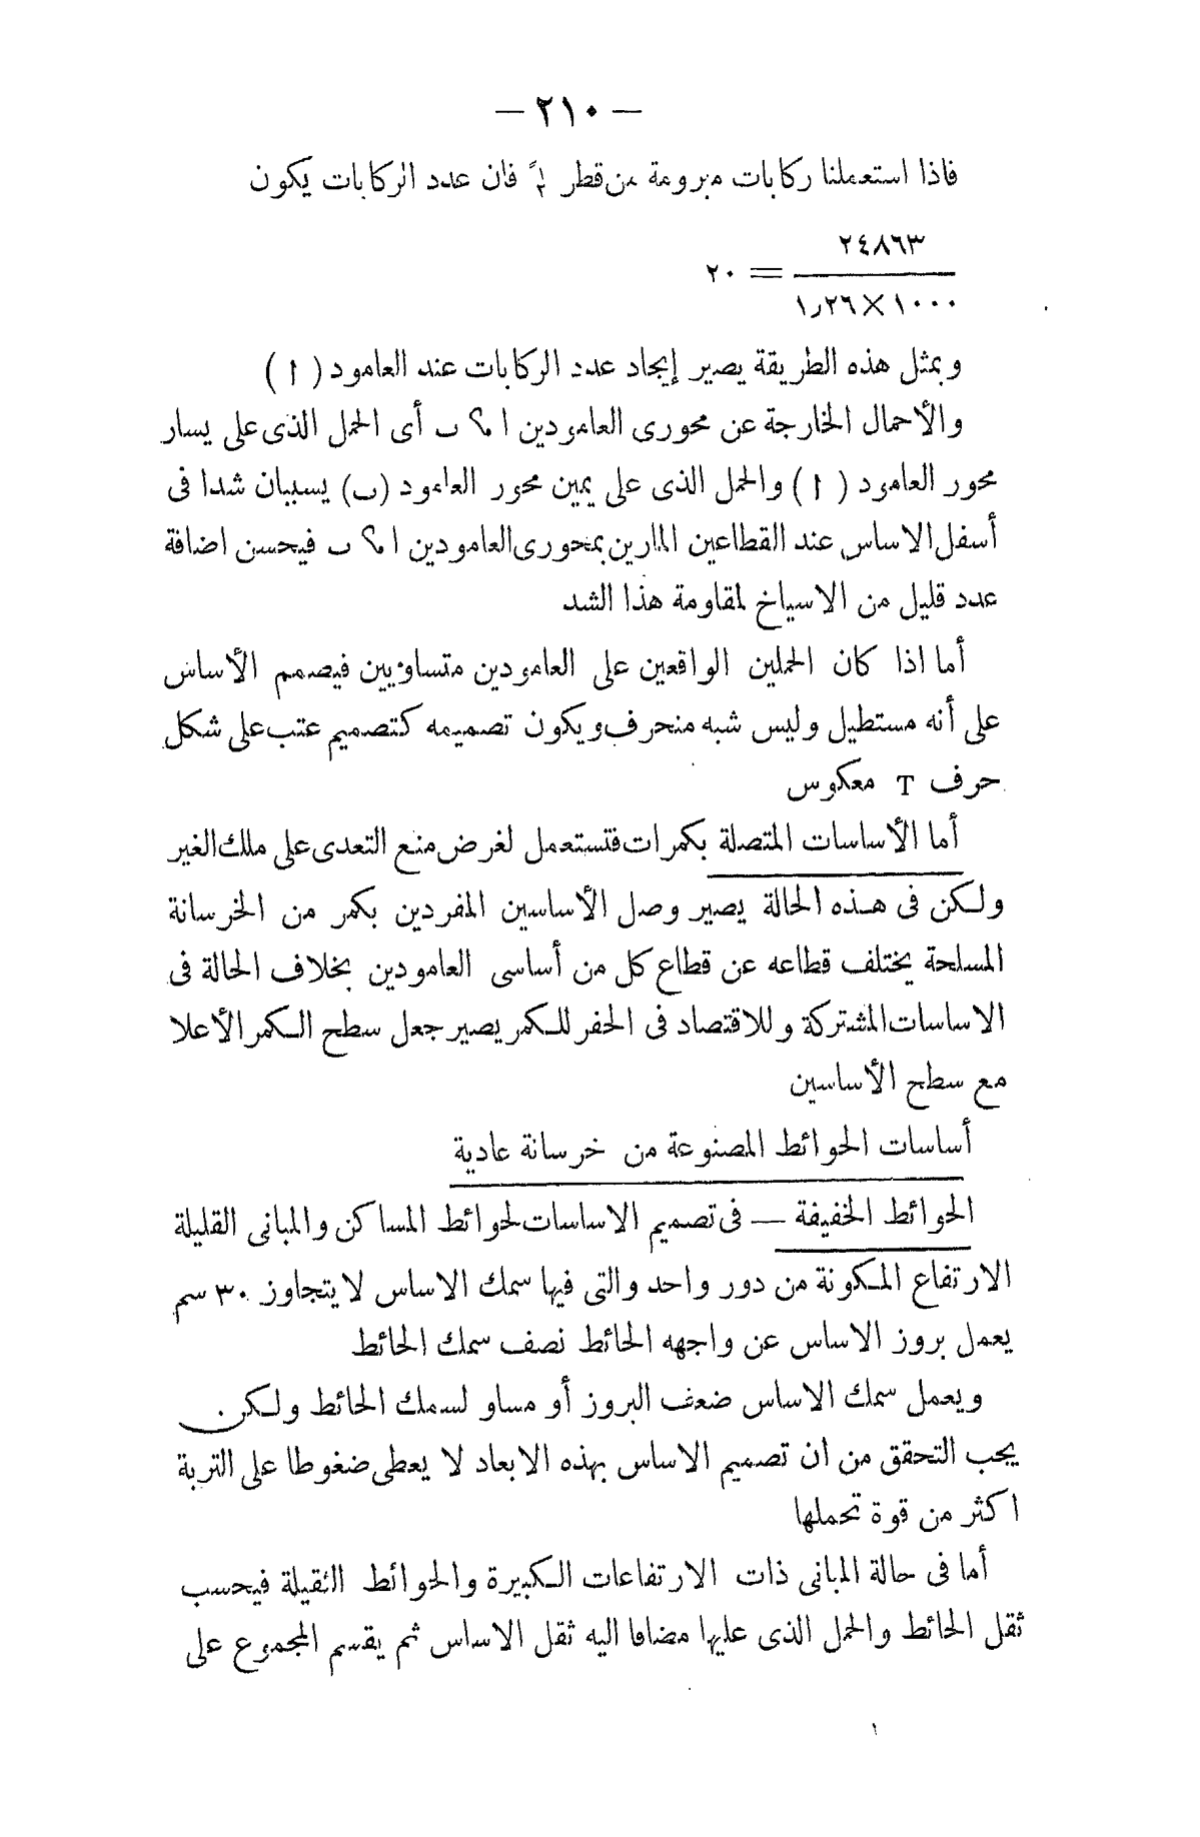 — ٢١٠ —
فاذا استعملنا ركابات مبرومة من قطر ½ً فان عدد الركابات يكون
٢٤٨٦٣
ــــــــــــ = ٢٠
١٠٠٠ × ١٫٢٦
وبمثل هذه الطريقة يصير إيجاد عدد الركابات عند العامود ( ا )
والأحمال الخارجة عن محورى العامودين ا ؟ ب أى الحمل الذى على يسار
محور العامود ( ا ) والحمل الذى على يمين محور العامود (ب) يسببان شدا فى
أسفل الاساس عند القطاعين المارين بمحورى العامودين ا ؟ ب فيحسن اضافة
عدد قليل من الاسياخ لمقاومة هذا الشد
أما اذا كان الحملين الواقعين على العامودين متساويين فيصمم الأساس
على أنه مستطيل وليس شبه منحرف ويكون تصميمه كتصميم عتب على شكل
حرف T معكوس
أما الأساسات المتصلة بكمرات فتستعمل لغرض منع التعدى على ملك الغير
ولكن فى هذه الحالة يصير وصل الأساسين المفردين بكمر من الخرسانة
المسلحة يختلف قطاعه عن قطاع كل من أساسى العامودين بخلاف الحالة فى
الاساسات المشتركة وللاقتصاد فى الحفر للكمر يصير جعل سطح الكمر الأعلا
مع سطح الأساسين
أساسات الحوائط المصنوعة من خرسانة عادية
الحوائط الخفيفة — فى تصميم الاساسات لحوائط المساكن والمبانى القليلة
الارتفاع المكونة من دور واحد والتى فيها سمك الاساس لا يتجاوز ٣٠ سم
يعمل بروز الاساس عن واجهه الحائط نصف سمك الحائط
ويعمل سمك الاساس ضعف البروز أو مساو لسمك الحائط ولكن
يجب التحقق من ان تصميم الاساس بهذه الابعاد لا يعطى ضغوطا على التربة
اكثر من قوة تحملها
أما فى حالة المبانى ذات الارتفاعات الكبيرة والحوائط الثقيلة فيحسب
ثقل الحائط والحمل الذى عليها مضافا اليه ثقل الاساس ثم يقسم المجموع على